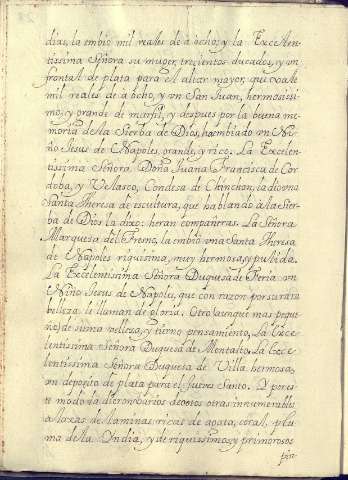 dias, la embio mil reales de à ocho, y la Excelen-
tissima Señora su muger, trecientos ducados, y vn
frontal de plata para el altar mayor, que vale
mil reales de à ocho, y vn San Juan, hermosissi-
mo, y grande de marfil, y despues por la buena me-
moria de la Sierba de Dios, ha embiado vn Ni-
ño Jesus de Napoles, grande, y rico. La Excelen-
tissima Señora, Doña Juana Francisca de Cor-
doba, y Velasco, Condesa de Chinchon, la dio vna
Santa Theresa de escultura, que hablando à la Sier-
ba de Dios la dixo: heran compañeras. La Señora
Marquesa del Fresno, la embiò vna Santa Theresa
de Napoles riquisima, muy hermosa, y pulida.
La Excelentissima Señora Duquesa de Feria vn
Niño Jesus de Napoles, que con razon por su rara
belleza le llaman de gloria: Otro (aunque mas peque-
ño) de suma velleza, y tierno pensamiento, La Exce-
lentissima Señora Duquesa de Montalto. La Exce-
lentissima Señora Duquesa de Villa hermosa,
vn deposito de plata para el Jueves Santo. Y por es-
te modo la dieron varios devotos otras innumerables
alaxas de laminas ricas de agata, coral, plu
ma de la Yndia, y de riquissimos, y primorosos
pin-